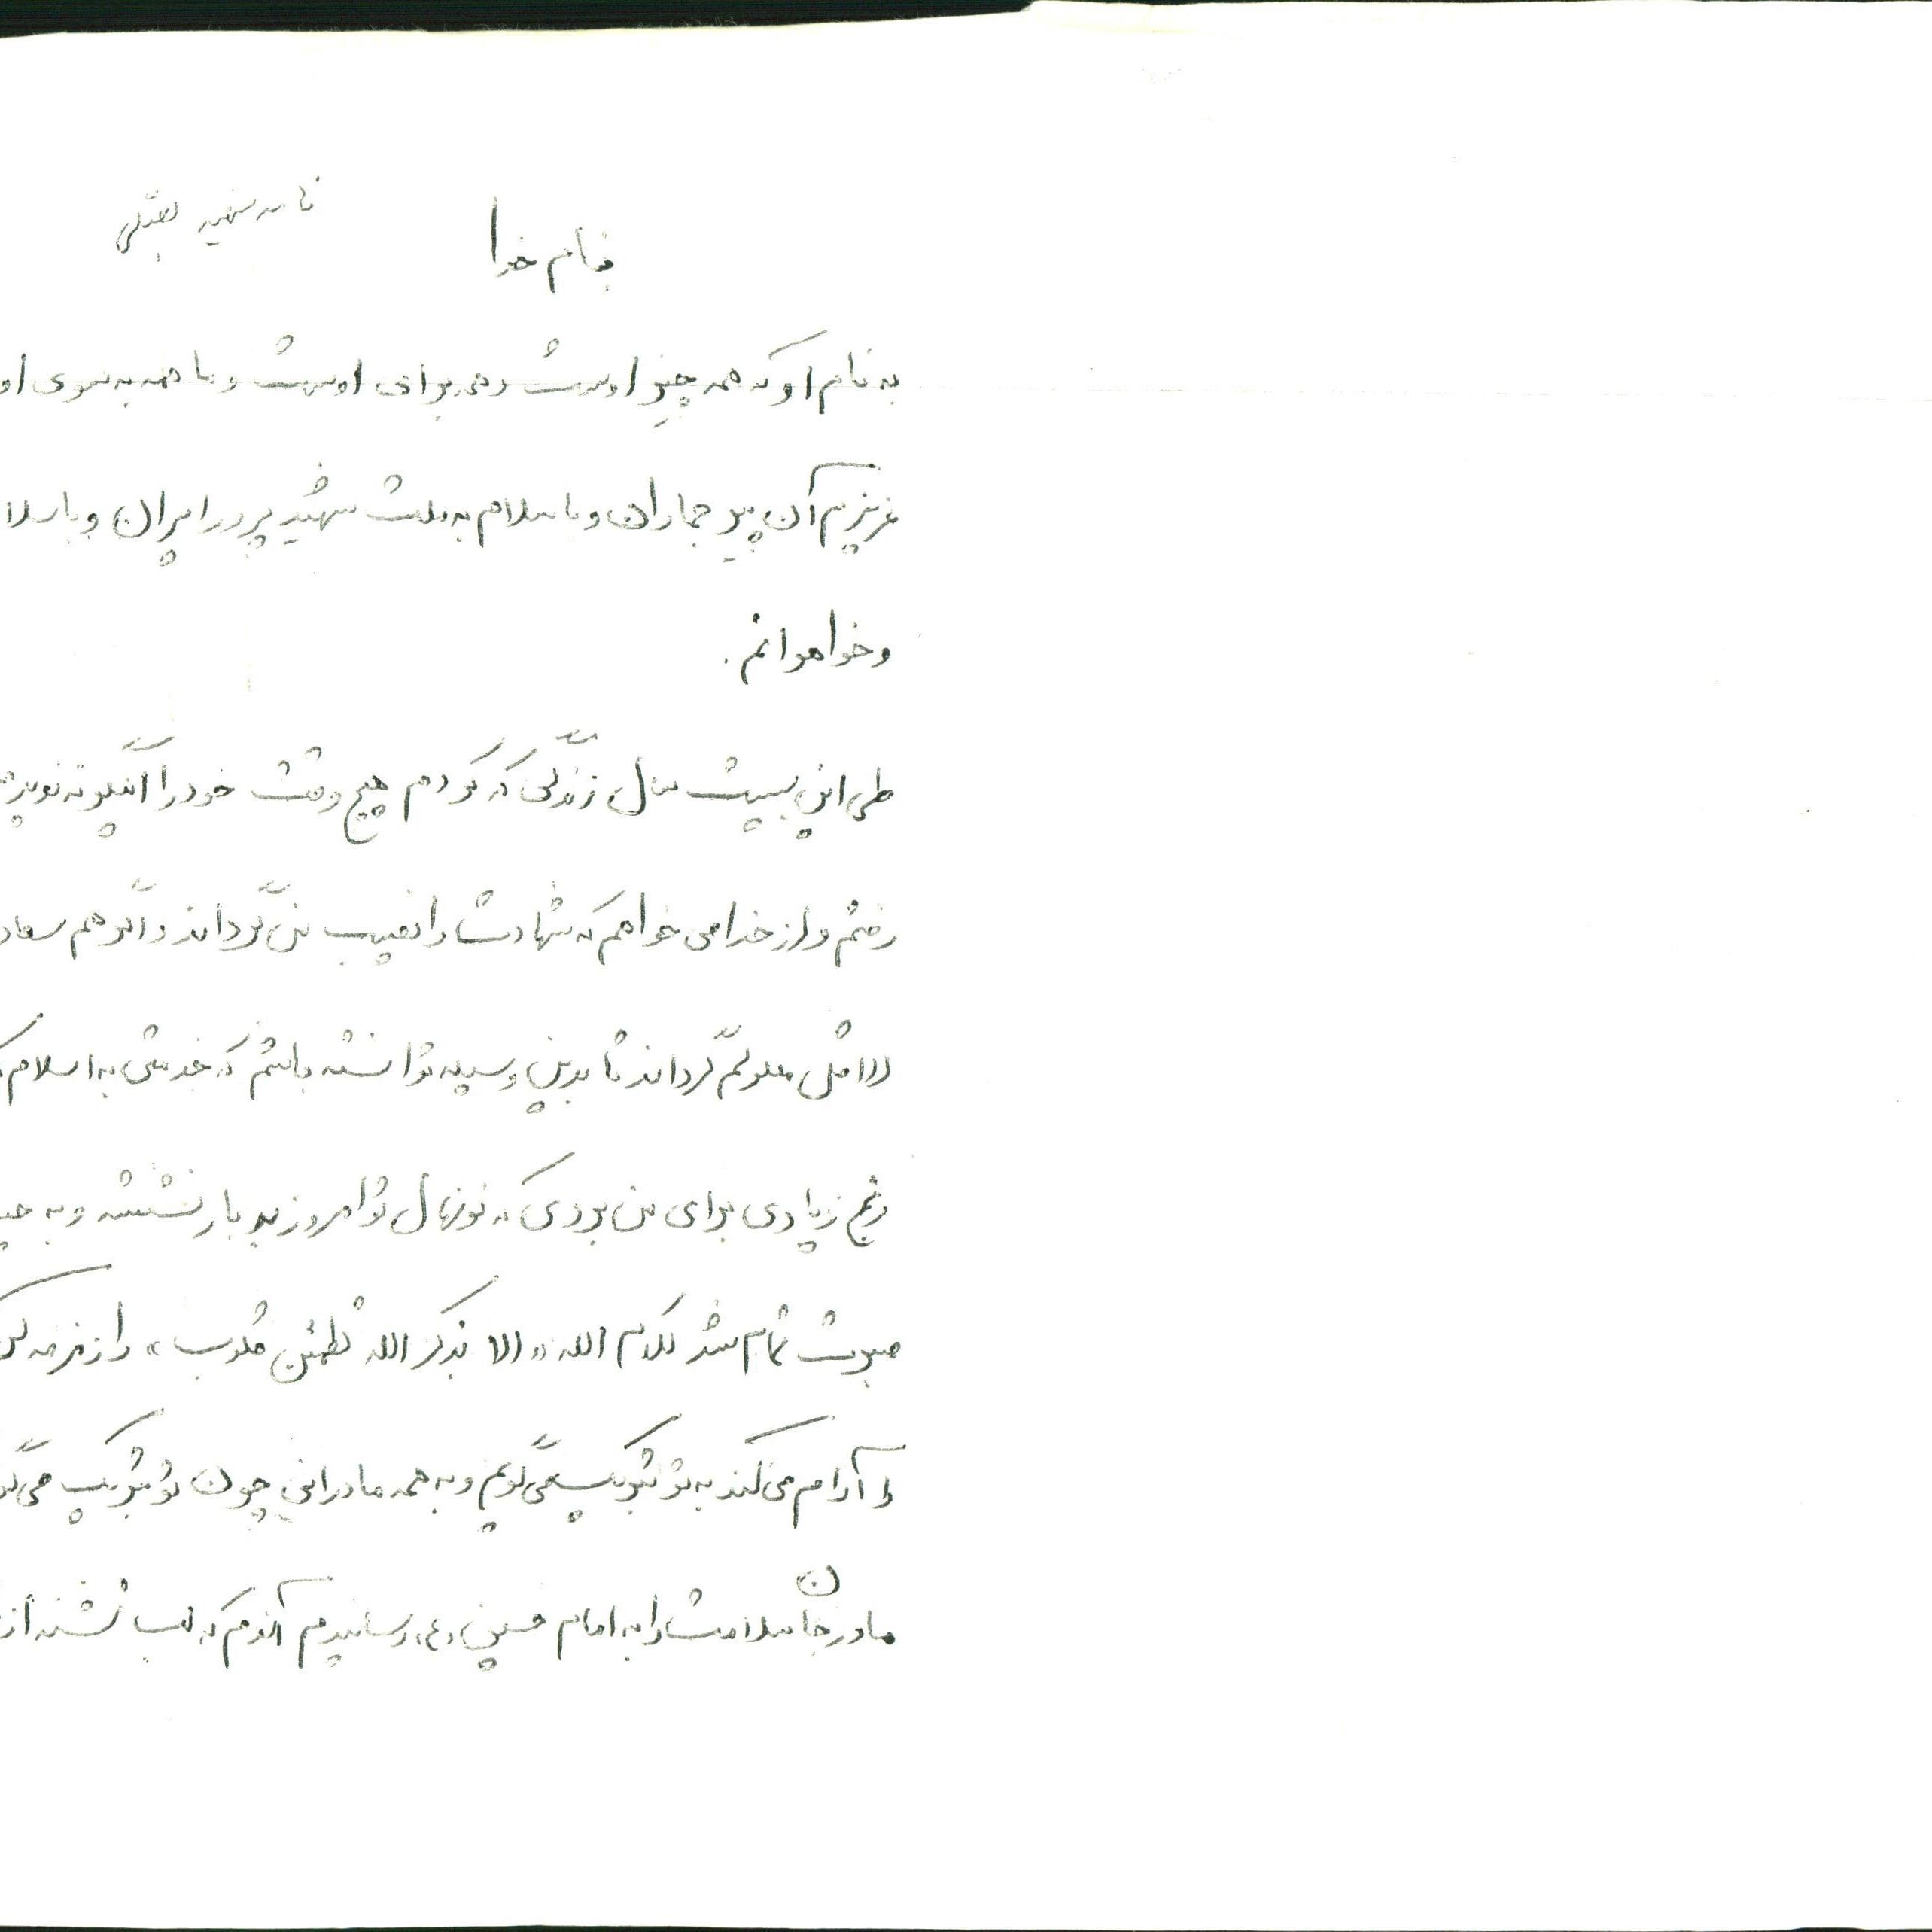 نامه شهید
بنام خدا
به نام او که همه چیز اوست و همه برای اوست و ما همه به سوی او
عزیزم آن پیر جماران و با سلام به ملت شهید پرور ایران و با سلا
و خواهرانم .
طی این بیست سال زندگی که کردم هیچ وقت خود را اینگونه ندید
رفتم و از خدا می خواهم که شهادت را نصیب من گرداند و اگر هم سعاد
لااقل معلولم گرداند تا بدین وسیله توانسته باشم که خدمتی به اسلام
رنج زیادی برای من بردی که نونهال تو امروز به بار نشسته و به
صبرت تمام شد کلام الله «الا بذکر الله تطمئن قلوب» را زمزمه
را آرام می کند به تو تبریک می گویم و به همه مادرانی چون تو تبریک می
مادر جان سلامت را به امام حسین (ع) رساندم آندم که لب تشنه از